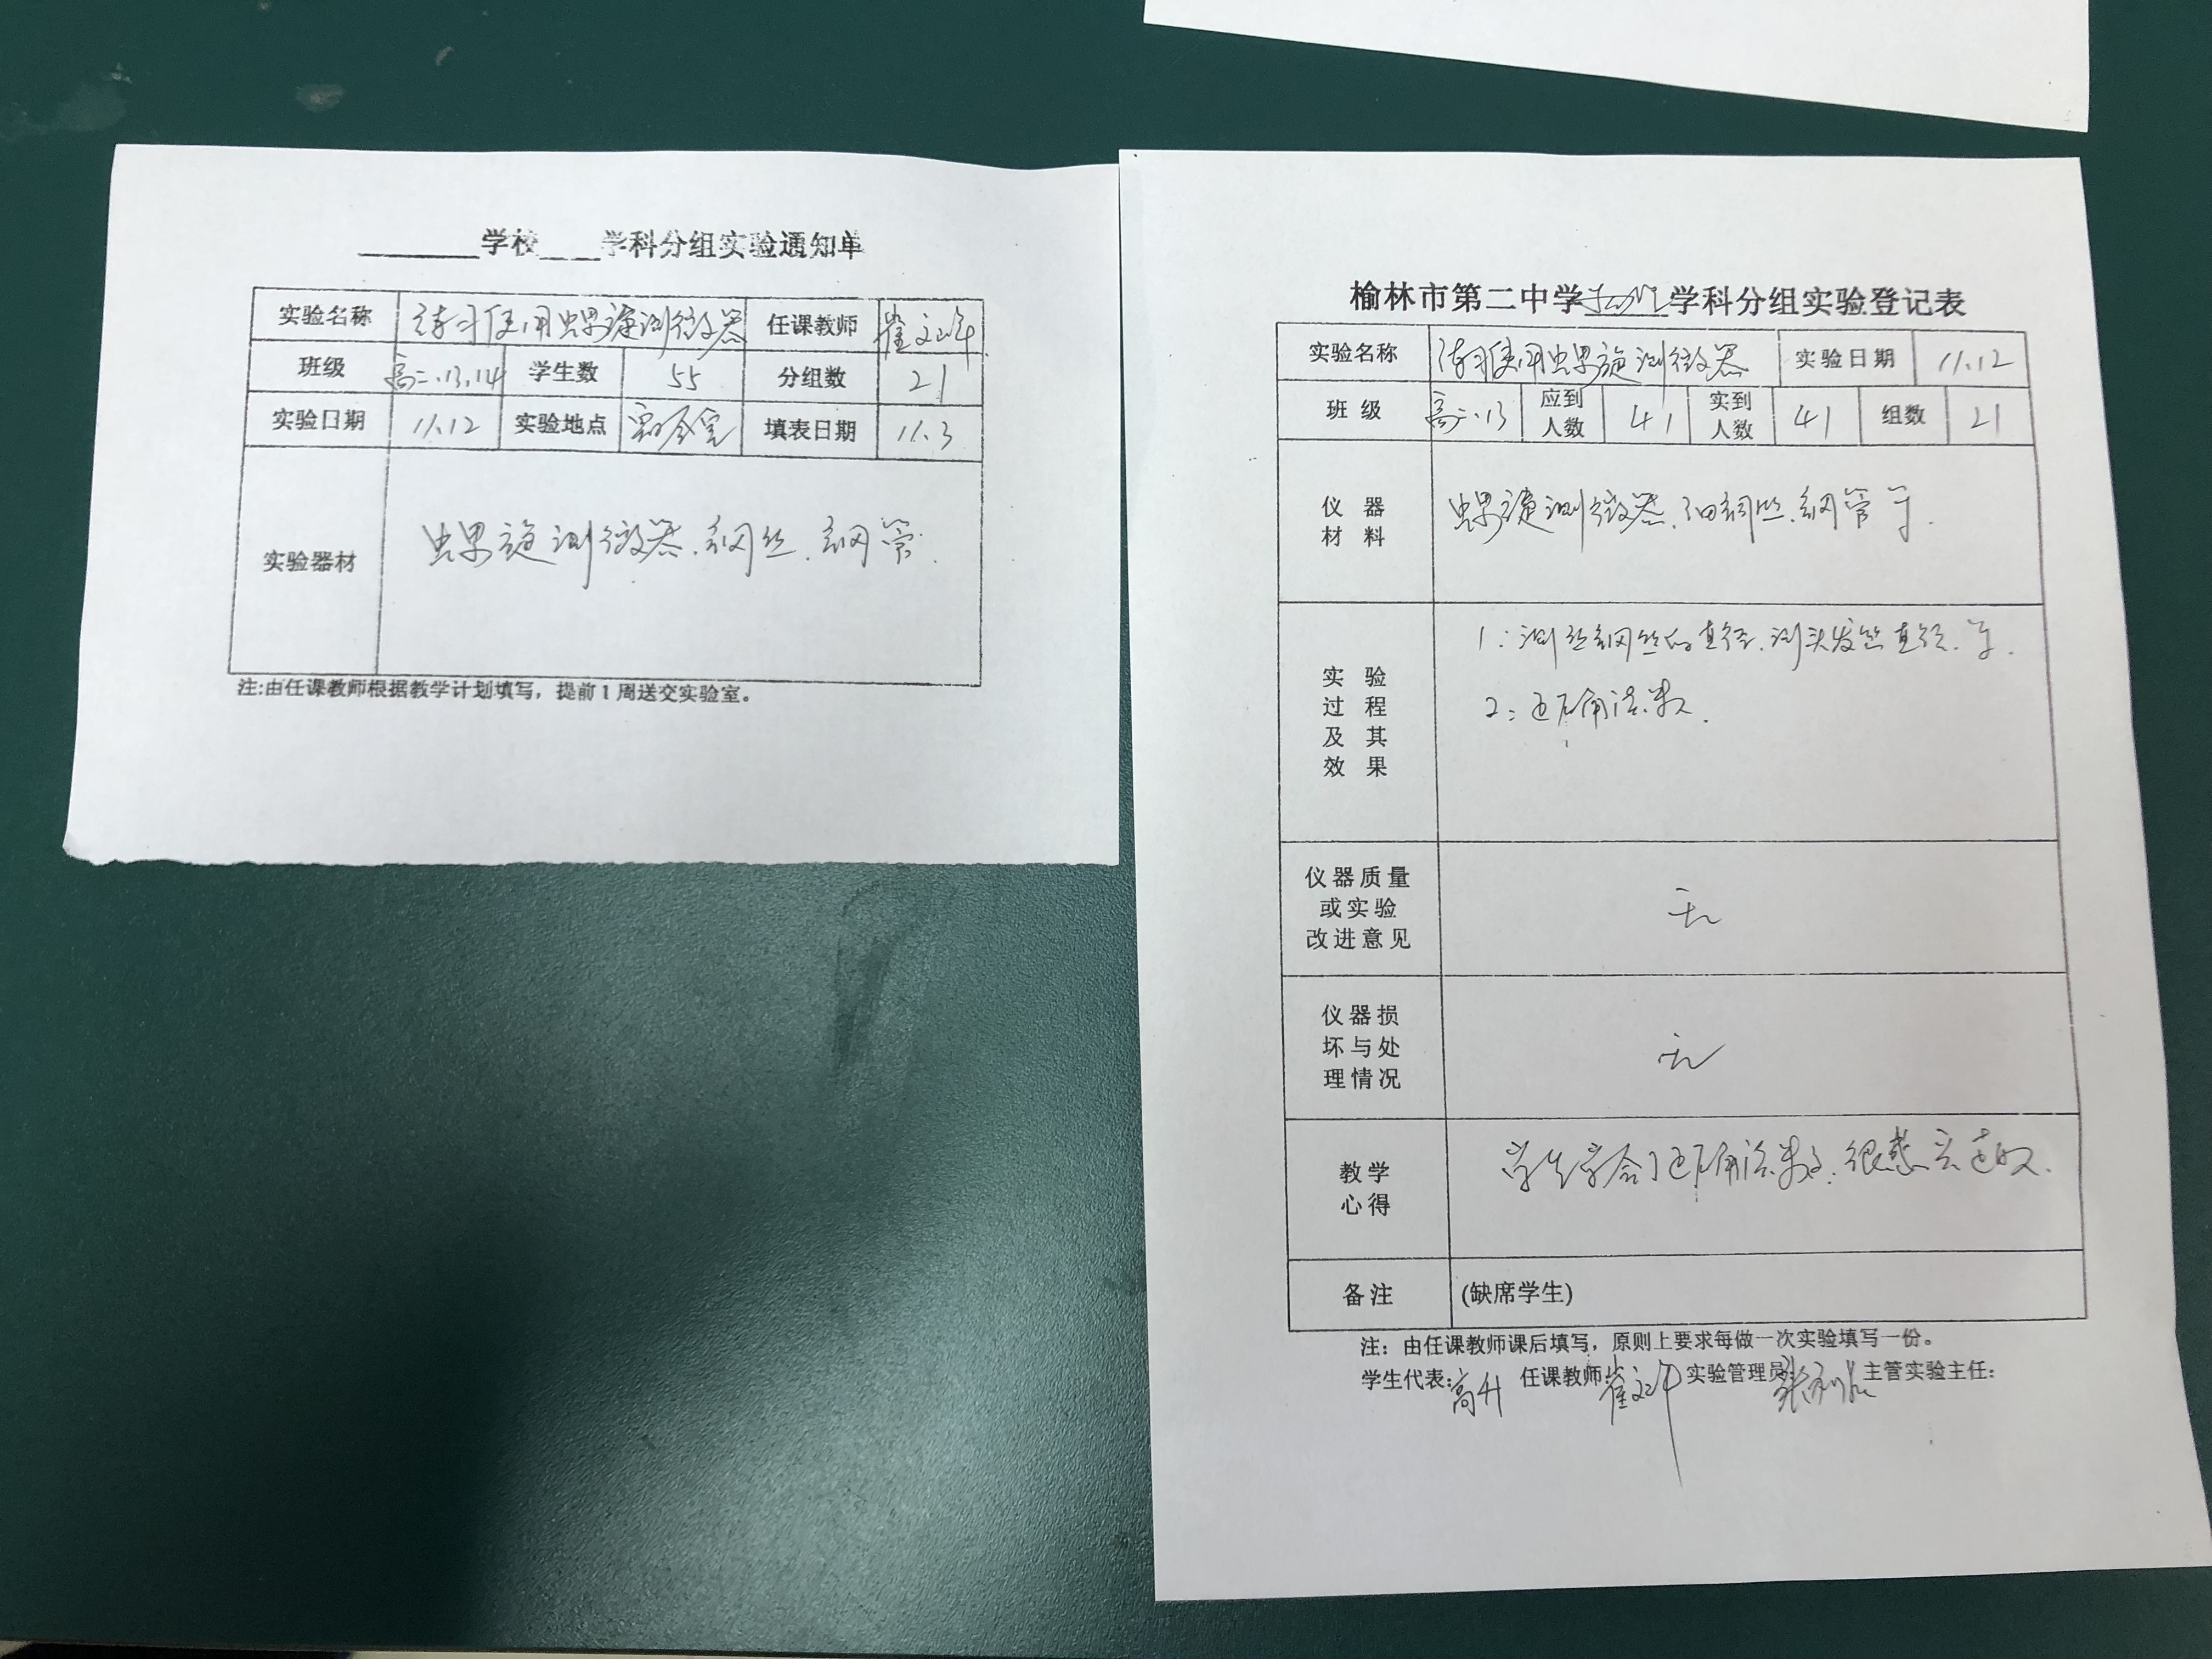 学校 学科分组实验通知单
实验名称 练习使用螺旋测微器 任课教师 崔文峰
班级 高二.13.14 学生数 55 分组数 21
实验日期 11.12 实验地点 实验室 填表日期 11.3
实验器材 螺旋测微器.钢丝.钢管.
注:由任课教师根据教学计划填写，提前1周送交实验室。
榆林市第二中学物理学科分组实验登记表
实验名称 练习使用螺旋测微器 实验日期 11.12
班级 高二.13 应到人数 41 实到人数 41 组数 21
仪器材料 螺旋测微器.细钢丝.钢管等.
实验过程及其效果 1:测 钢丝的直径.测头发丝直径.等.
2:正确读数.
仪器质量或实验改进意见 无
仪器损坏与处理情况 无
教学心得 学生学会了正确读数.很感兴趣.
备注 (缺席学生)
注：由任课教师课后填写，原则上要求每做一次实验填写一份。
学生代表:高升 任课教师:崔文峰 实验管理员: 主管实验主任: